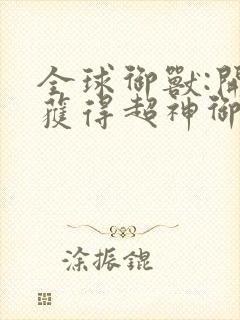 全球御獸:開
獲得超神御
涂振錕